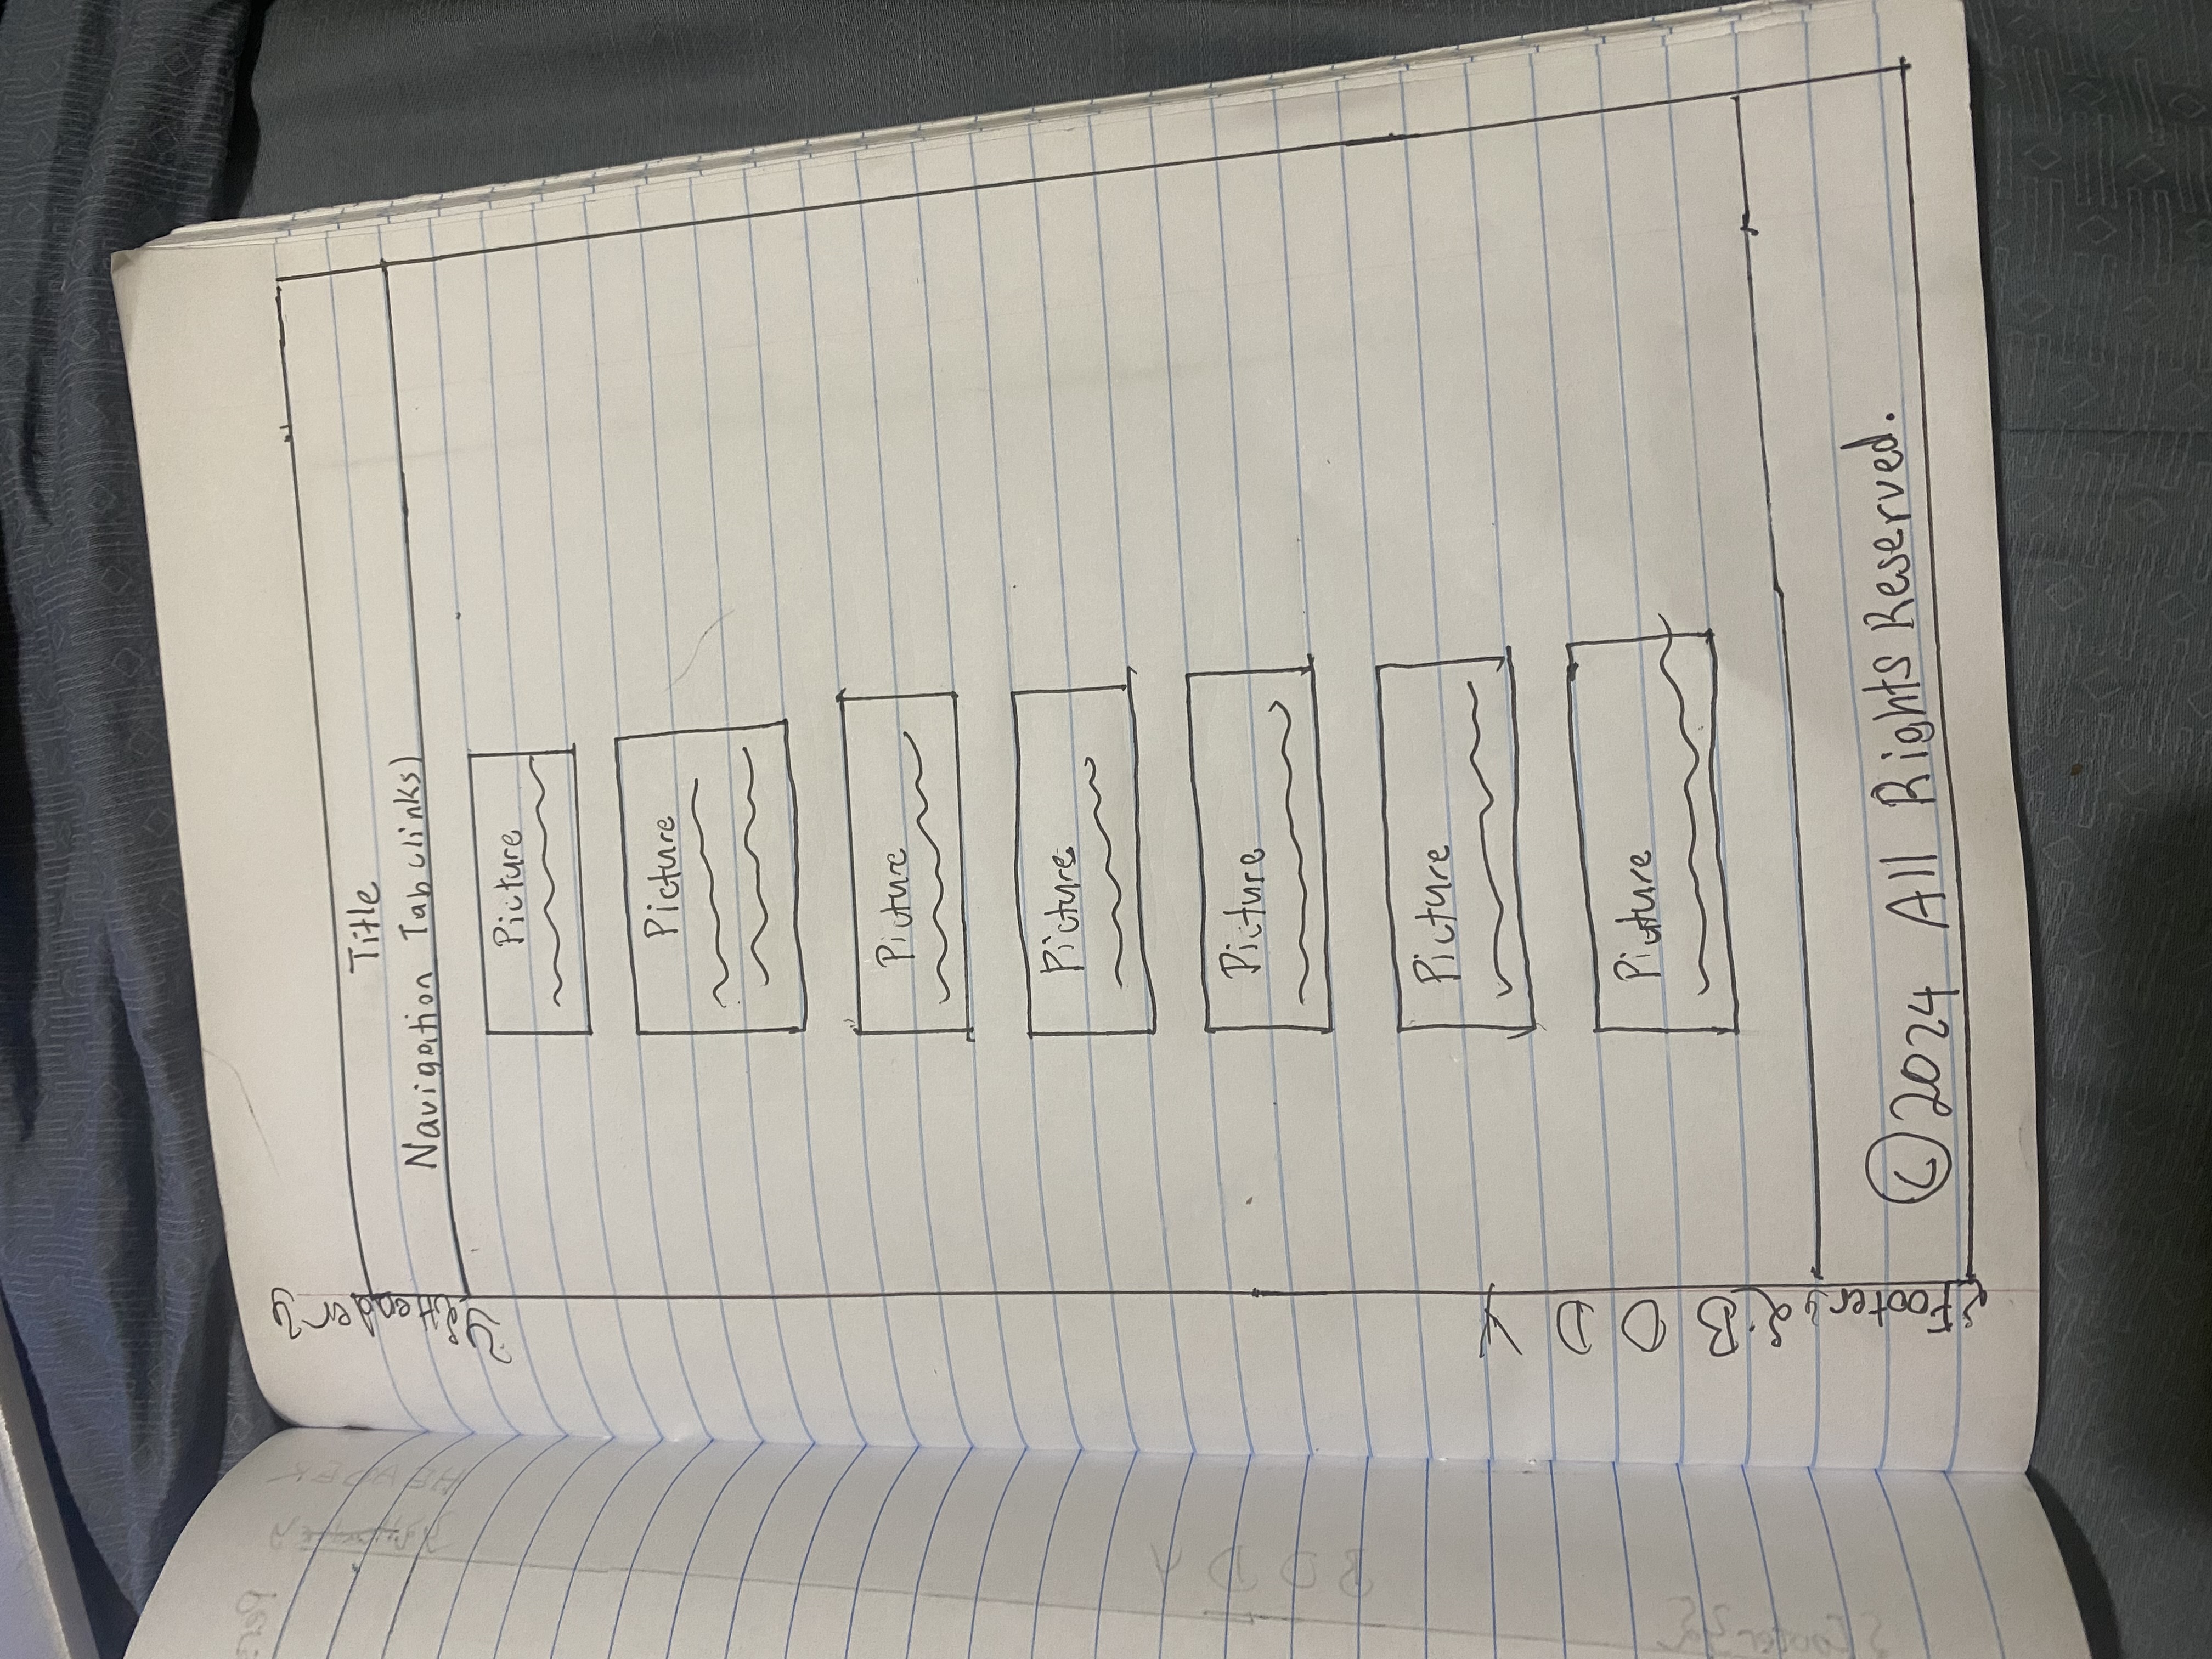 {Header}
Title
Navigation Tab (links)
Picture
Picture
Picture
Picture
Picture
Picture
Picture
{BODY
{Footer}
© 2024 All Rights Reserved.